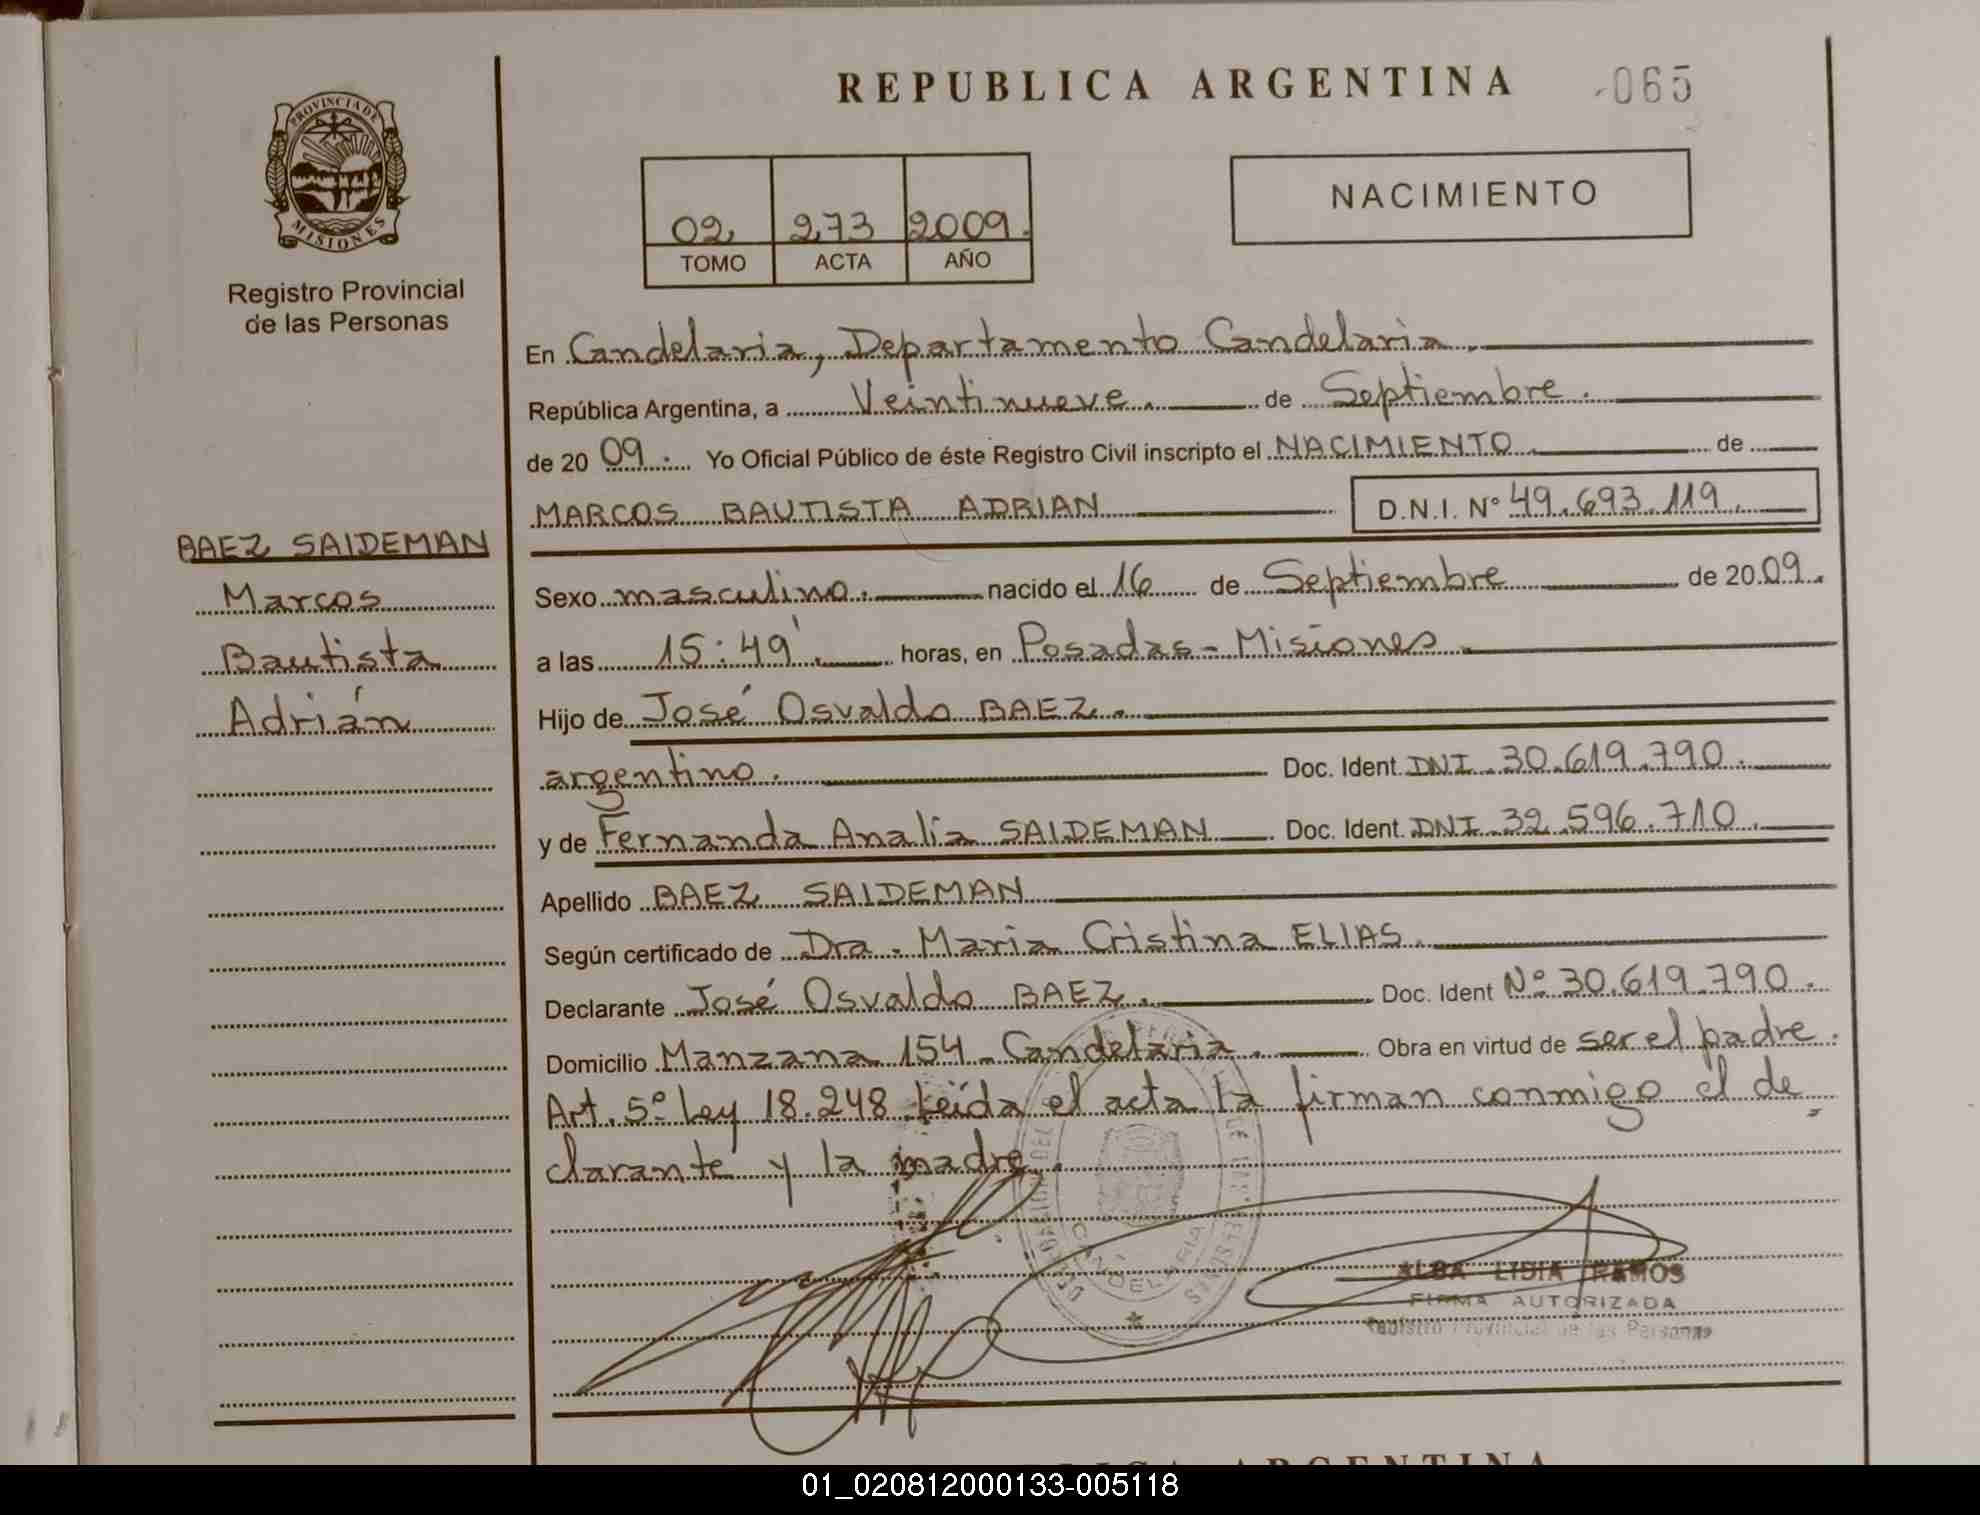 REPUBLICA ARGENTINA
065
PROVINCIA DE
MISIONES
Registro Provincial
de las Personas
02 273 2009.
TOMO ACTA AÑO
NACIMIENTO
En Candelaria, Departamento Candelaria.
República Argentina, a Veintinueve. de Septiembre.
de 20 09. Yo Oficial Público de éste Registro Civil inscripto el NACIMIENTO de
MARCOS BAUTISTA ADRIAN D.N.I. N° 49.693.119.
BAEZ SAIDEMAN
Marcos
Bautista
Adrián
Sexo masculino. nacido el 16 de Septiembre de 20 09.
a las 15:49'. horas, en Posadas - Misiones.
Hijo de José Osvaldo BAEZ.
argentino. Doc. Ident. DNI 30.619.790.
y de Fernanda Analía SAIDEMAN Doc. Ident. DNI 32.596.710.
Apellido BAEZ SAIDEMAN
Según certificado de Dra. Maria Cristina ELIAS.
Declarante José Osvaldo BAEZ. Doc. Ident N° 30.619.790.
Domicilio Manzana 154 - Candelaria. Obra en virtud de ser el padre.
Art. 5° Ley 18.248 Leída el acta la firman conmigo el de
clarante y la madre.
CANDELARIA
ALBA LIDIA RAMOS
FIRMA AUTORIZADA
Registro Provincial de las Personas
ARGENTINA
01_020812000133-005118